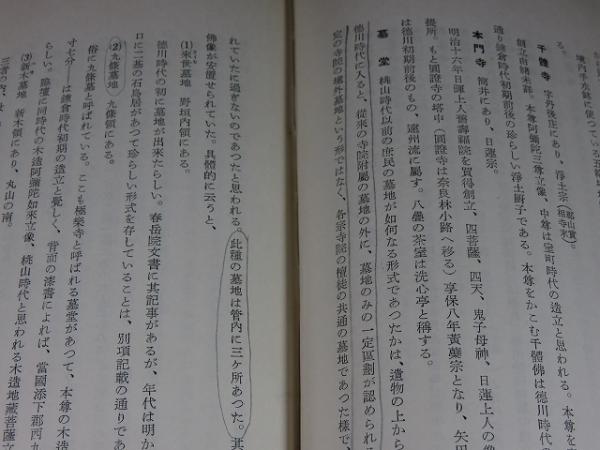 境内手水鉢に使って
る。
千體寺 字丹後庄にあり、浄土宗(郡山實相寺末)
創立由緒未詳。本尊阿彌陀三尊立像、中尊は室町時代の造立と思われる。本尊を
通り鎌倉時代初期前後の珍らしい浄土厨子である。本尊をかこむ千體佛は徳川時代の
本門寺 筒井にあり、日蓮宗。
明治十六年日暉上人舊壽福院を買得創立、四菩薩、四天、鬼子母神、日蓮上人の像
提所。もと圓證寺の塔中(圓證寺は奈良林小路へ移る)享保八年黄檗宗となり、矢田
は徳川初期前後のもの、遠州流に屬す。八疊の茶室は洗心亭と稱する。
墓堂 桃山時代以前の庶民の墓地が如何なる形式であつたかは、遺物の上から
徳川時代に入ると、從来の寺院附屬の墓地の外に、墓地のみの一定區劃が認められる
定の寺院の境外墓地という形ではなく、各宗寺院の檀徒の共通の墓地であつた様で、
れていたに過ぎないのであつたと思われる。此種の墓地は管内に三ヶ所あつた。其
佛像が安置せられていた。具體的に云うと、
(1)来世墓地 野垣内領にある。
徳川時代の初に墓地が出来たらしい。春岳院文書に其記事があるが、年代は明か
口に二基の石鳥居があつて珍らしい形式を存していることは、別項記載の通りであ
(2)九條墓地 九條領にある。
俗に九條墓と呼ばれている。ここも極樂寺と呼ばれる墓堂があつて、本尊の木造
寸七分―は鎌倉時代初期の造立と覺しく、背面の漆書によれば、當國添下郡西九
らしい。脇壇に同時代の木造阿彌陀如来立像、桃山時代と思われる木造地藏菩薩立
(3)新木墓地 新木領にあり、丸山の南。